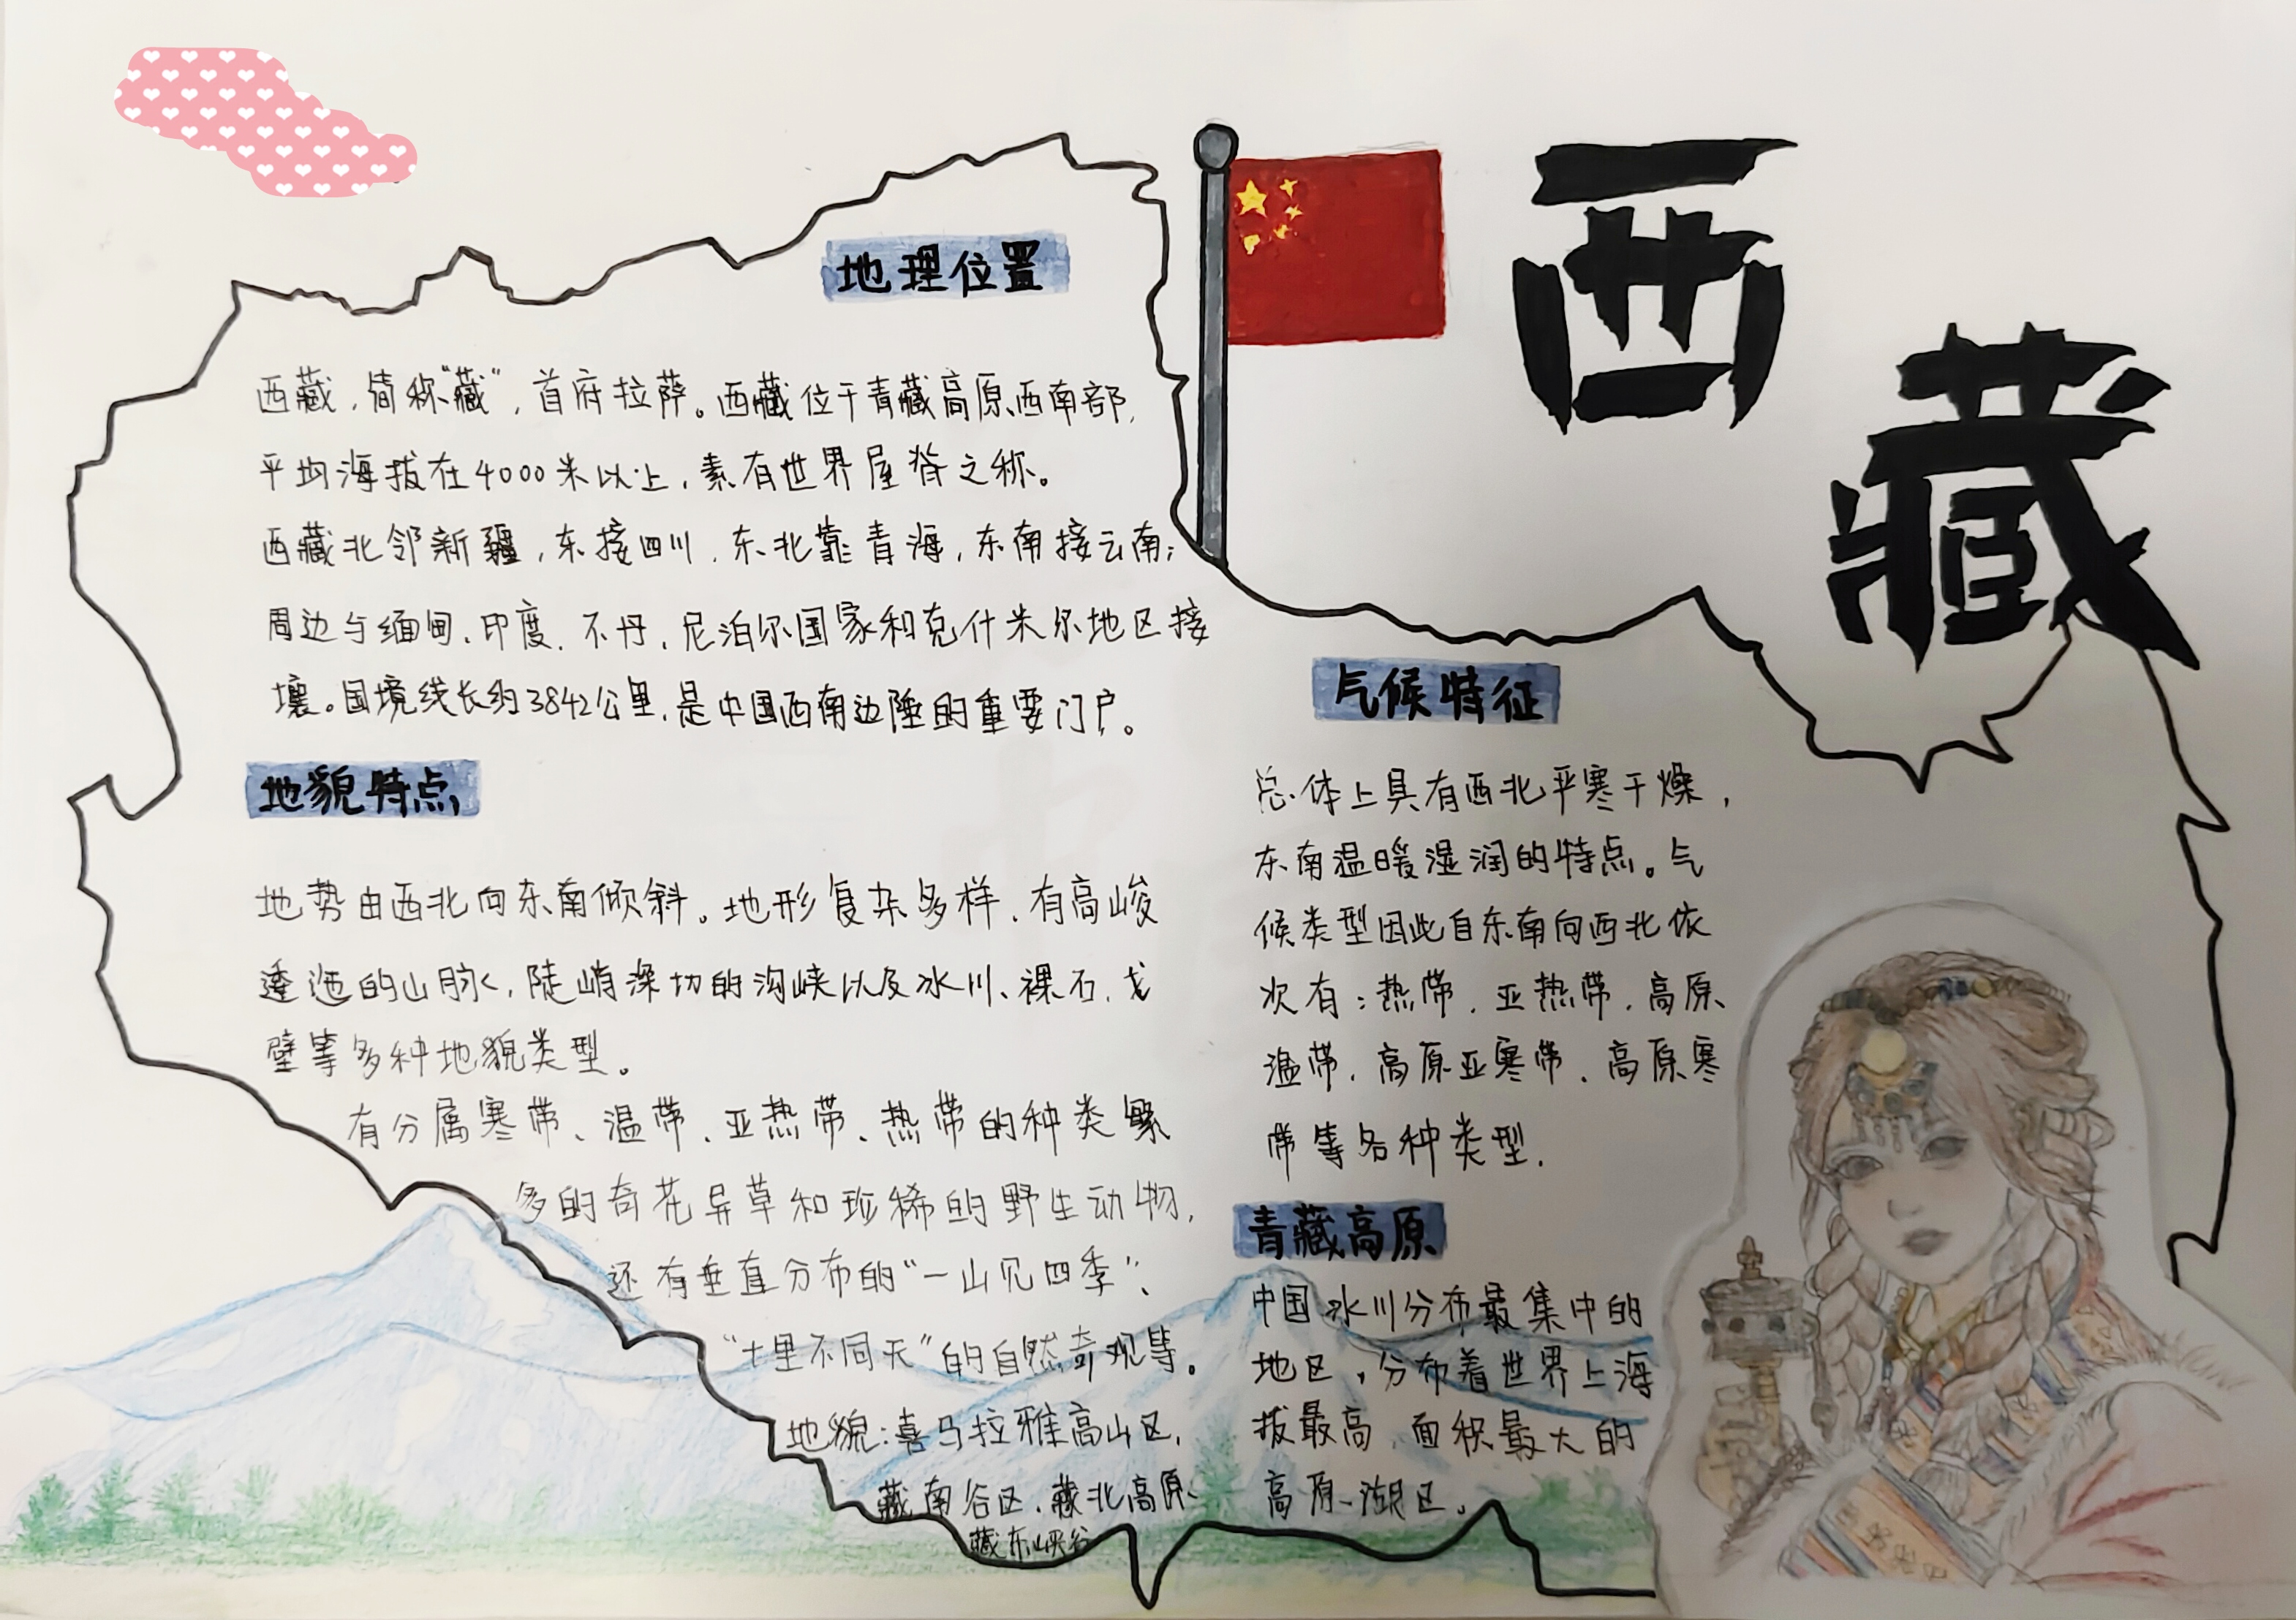 西藏
地理位置
西藏，简称“藏”，首府拉萨。西藏位于青藏高原西南部，
平均海拔在4000米以上，素有世界屋脊之称。
西藏北邻新疆，东接四川，东北靠青海，东南接云南；
周边与缅甸、印度、不丹、尼泊尔国家和克什米尔地区接
壤。国境线长约3842公里，是中国西南边陲的重要门户。
地貌特点
地势由西北向东南倾斜。地形复杂多样，有高峻
逶迤的山脉，陡峭深切的沟峡以及冰川、裸石、戈
壁等多种地貌类型。
有分属寒带、温带、亚热带、热带的种类繁
多的奇花异草和珍稀的野生动物，
还有垂直分布的“一山见四季”、
“十里不同天”的自然奇观等。
地貌：喜马拉雅高山区，
藏南谷区、藏北高原、
藏东峡谷
气候特征
总体上具有西北严寒干燥，
东南温暖湿润的特点。气
候类型因此自东南向西北依
次有：热带、亚热带、高原
温带、高原亚寒带、高原寒
带等各种类型.
青藏高原
中国冰川分布最集中的
地区，分布着世界上海
拔最高、面积最大的
高原湖区。